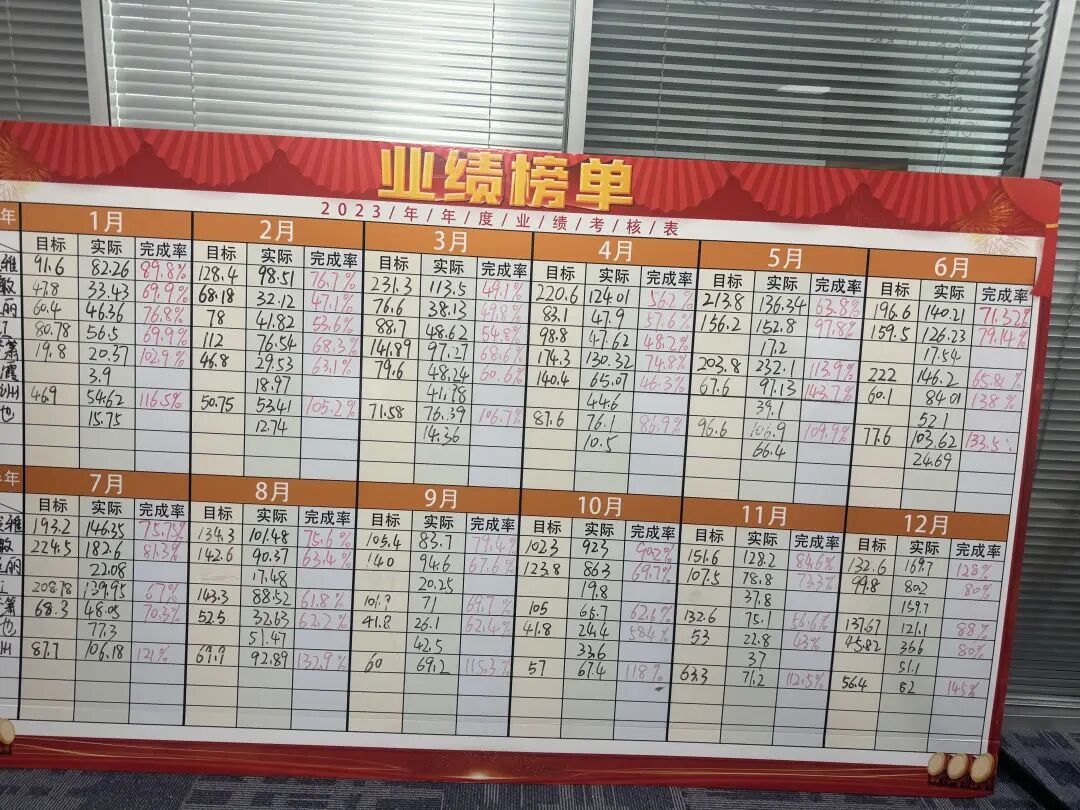 业绩榜单
2023/年/年/度/业/绩/考/核/表
年 1月 2月 3月 4月 5月 6月
目标 实际 完成率 目标 实际 完成率 目标 实际 完成率 目标 实际 完成率 目标 实际 完成率 目标 实际 完成率
維 91.6 82.26 89.8% 128.4 98.51 76.7% 231.3 113.5 49.1% 220.6 124.01 56.2% 213.8 136.34 63.8% 196.6 140.21 71.32%
敏 47.8 33.43 69.9% 68.18 32.12 47.1% 76.6 38.13 49.8% 83.1 47.9 57.6% 156.2 152.8 97.8% 159.5 126.23 79.14%
丽 60.4 46.36 76.8% 78 41.82 53.6% 88.7 48.62 54.8% 98.8 47.62 48.2% 17.2 17.54
80.78 56.5 69.9% 112 76.54 68.3% 141.89 97.27 68.6% 174.3 130.32 74.8% 203.8 232.1 113.9% 222 146.2 65.81%
萧 19.8 20.37 102.9% 46.8 29.53 63.1% 79.6 48.24 60.6% 140.4 65.07 46.3% 67.6 97.13 143.7% 60.1 84.01 138%
霞 3.9 18.97 41.78 44.6 39.1 52.1
州 46.9 54.62 116.5% 50.75 53.41 105.2% 71.58 76.39 106.7% 87.6 76.1 86.9% 96.6 106.9 109.9% 77.6 103.62 133.5%
他 15.75 12.74 14.36 10.5 66.4 24.69
年 7月 8月 9月 10月 11月 12月
目标 实际 完成率 目标 实际 完成率 目标 实际 完成率 目标 实际 完成率 目标 实际 完成率 目标 实际 完成率
維 193.2 146.35 75.75% 134.3 101.48 75.6% 105.4 83.7 79.4% 102.3 92.3 90.2% 151.6 128.2 84.6% 132.6 169.7 128%
敏 224.5 182.6 81.3% 142.6 90.37 63.4% 140 94.6 67.6% 123.8 86.3 69.7% 107.5 78.8 73.3% 99.8 80.2 80%
丽 22.08 17.48 20.25 19.8 37.8 159.7
208.78 139.95 67% 143.3 88.52 61.8% 101.9 71 69.7% 105 65.7 62.6% 132.6 75.1 56.6% 137.67 121.1 88%
萧 68.3 48.05 70.3% 52.5 32.63 62.2% 41.8 26.1 62.4% 41.8 24.4 58.4% 53 22.8 43% 45.82 36.6 80%
他 77.3 51.47 42.5 33.6 37 51.1
州 87.7 106.18 121% 92.89 132.9% 60 69.2 115.3% 57 67.4 118% 63.3 71.2 112.5% 56.4 82 145%